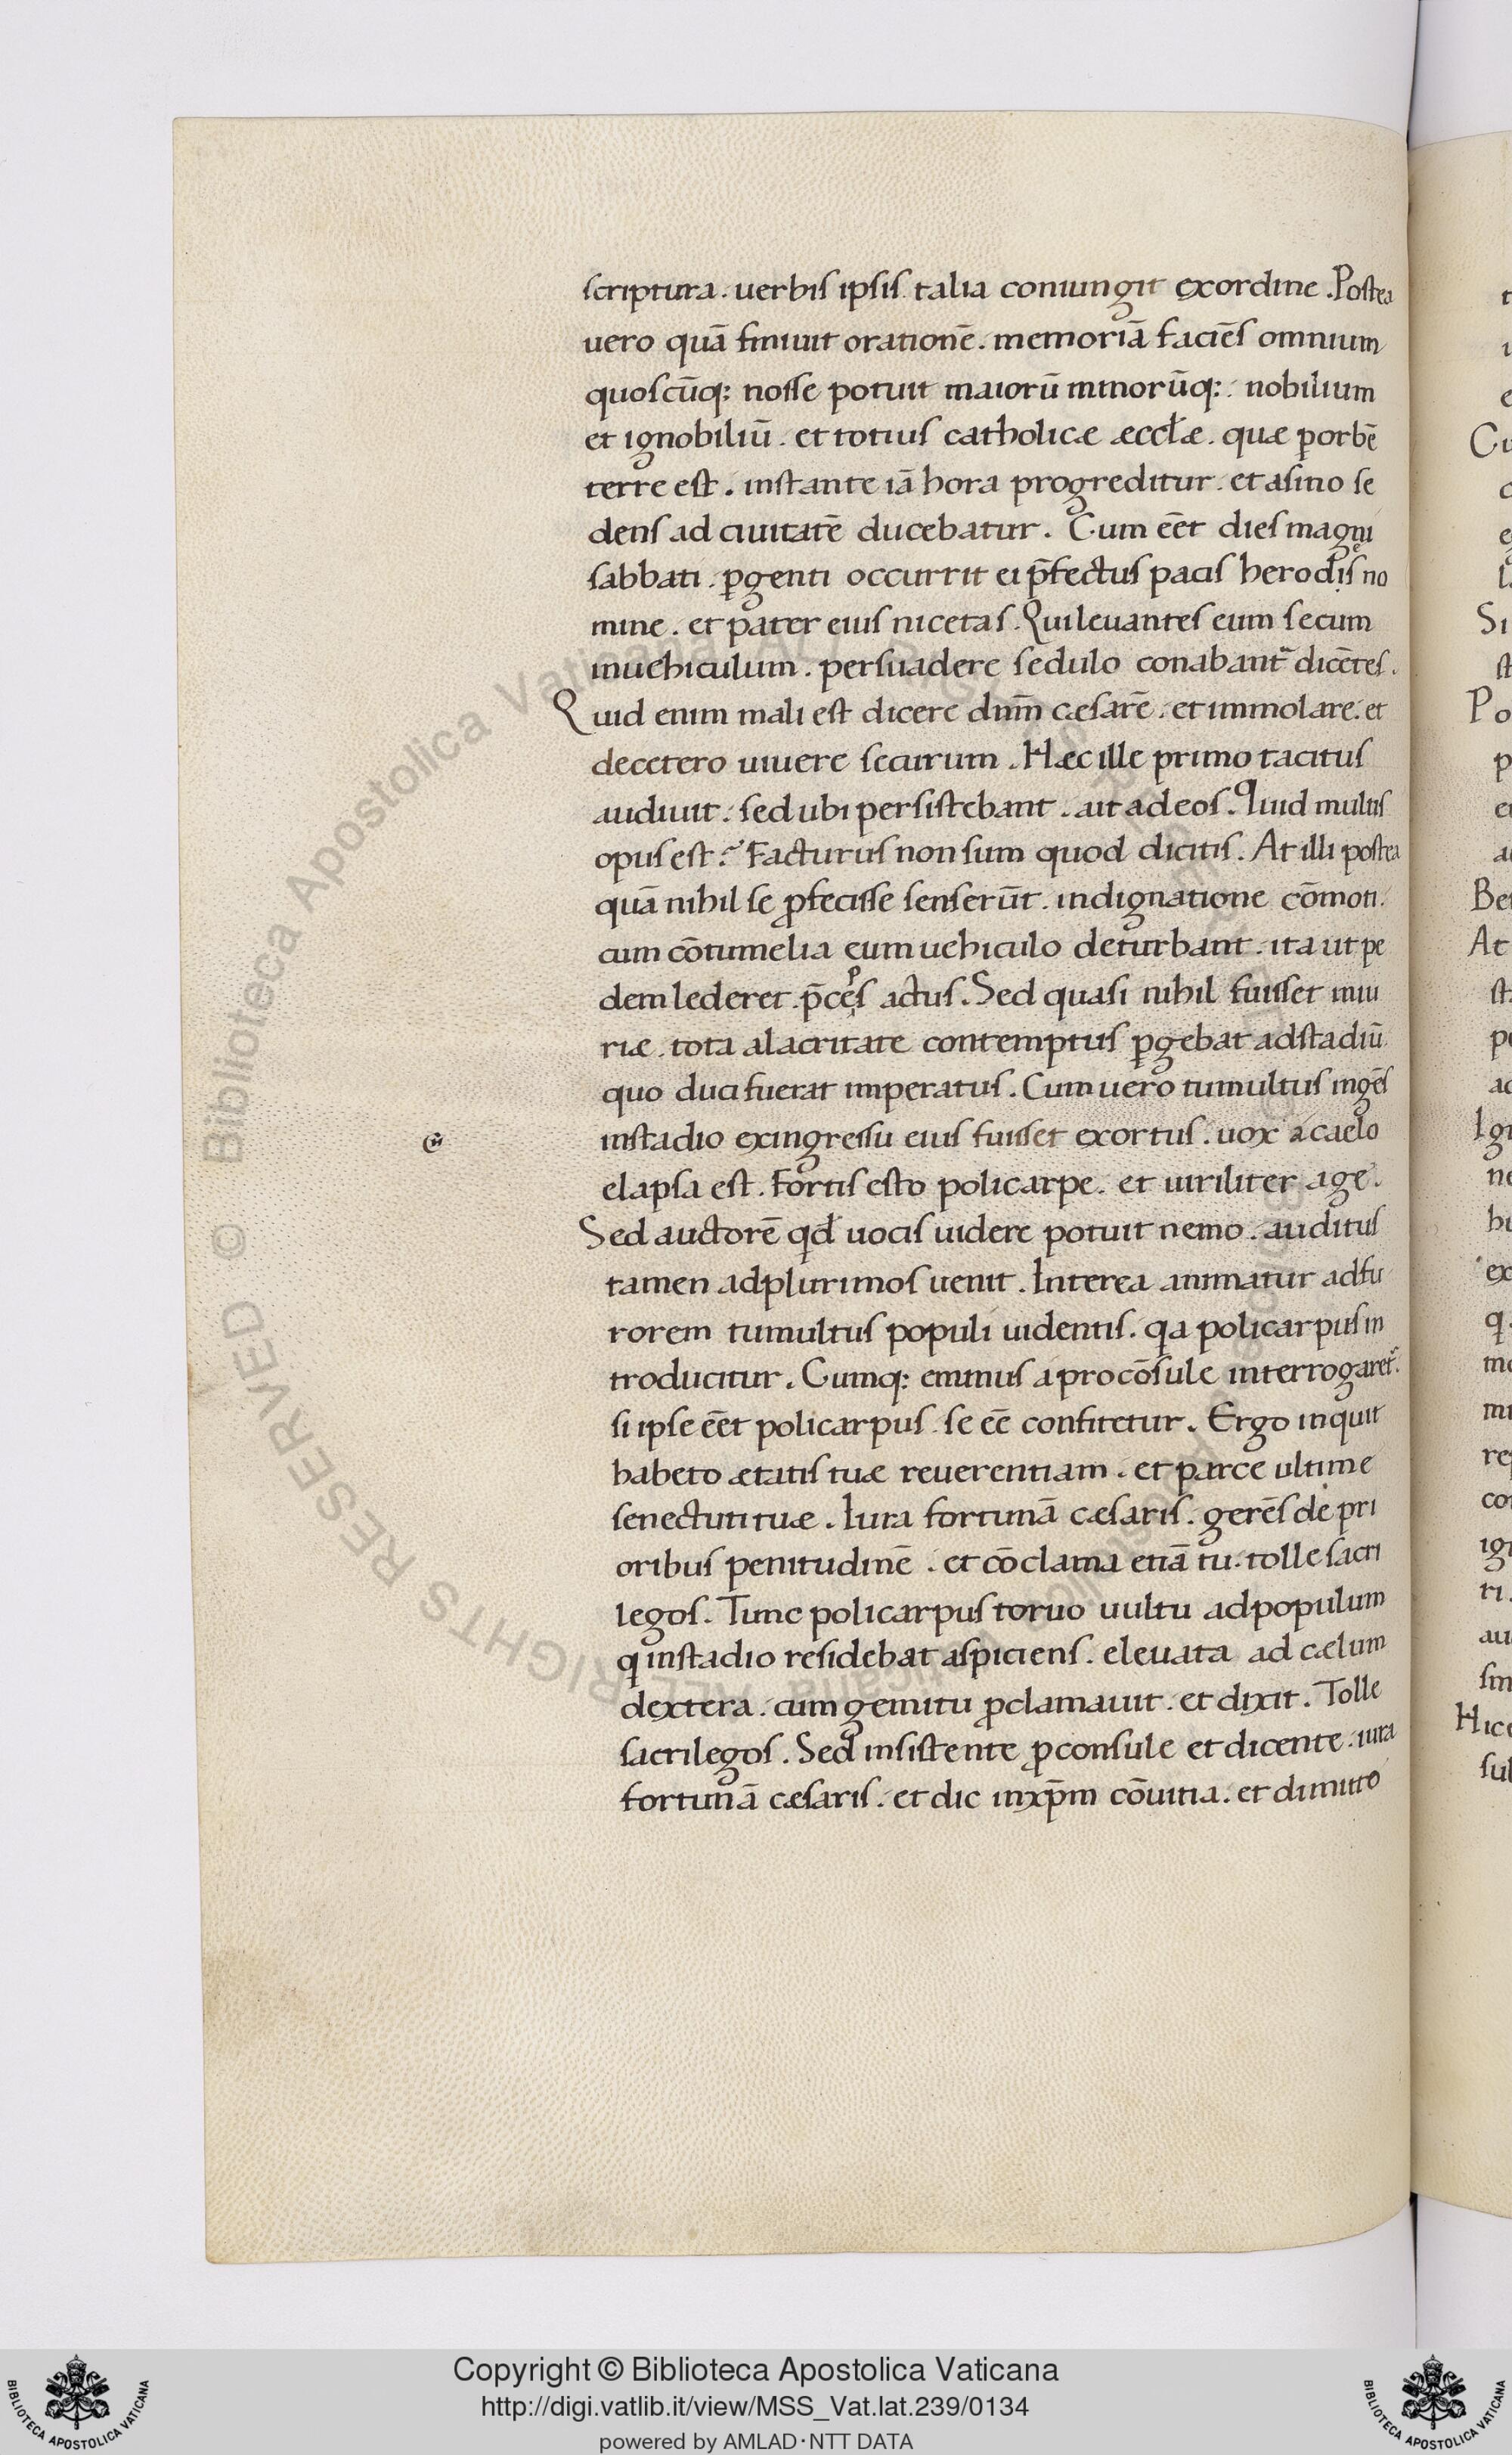 scriptura. uerbis ipsis talia coniungit ex ordine. Postea
uero quā finiuit orationē. memoriā faciēs omnium
quoscūq; nosse potuit maiorū minorūq;. nobilium
et ignobiliū. et totius catholicæ æccłæ. quæ ꝑ orbē
terre est. instante iā hora progreditur. et asino se
dens ad ciuitatē ducebatur. Cum eēt dies magni
sabbati. ꝑgenti occurrit ei p̄fectus pacis herodis no
mine. et pater eius nicetas. Qui leuantes eum secum
in uehiculum. persuadere sedulo conabant᷑ dicētes.
Quid enim mali est dicere dn̄m cæsarē. et immolare. et
decetero uiuere securum. Hæc ille primo tacitus
audiuit. sed ubi persistebant. ait ad eos. Quid multis
opus est? Facturus non sum quod dicitis. At illi postea
quā nihil se ꝓfecisse senserūt. indignatione cōmoti.
cum cōtumelia eum uehiculo deturbant. ita ut pe
dem lederet. p̄ceps actus. Sed quasi nihil fuisset iniu
riæ. tota alacritate contemptus ꝑgebat ad stadiū
quo duci fuerat imperatus. Cum uero tumultus ingēs
in stadio ex ingressu eius fuisset exortus. uox a caelo
elapsa est. Fortis esto policarpe. et uiriliter age.
Sed auctorē qđ uocis uidere potuit nemo. auditus
tamen ad plurimos uenit. Interea animatur ad fu
rorem tumultus populi uidentis. qa policarpus in
troducitur. Cumq; eminus a procōsule interrogaret᷑.
si ipse eēt policarpus. se eē confitetur. Ergo inquit
habeto ætatis tuæ reuerentiam. et parce ultime
senectuti tuæ. Iura fortunā cæsaris. gerēs de pri
oribus penitudinē. et cōclama etiā tu. tolle sacri
legos. Tunc policarpus toruo uultu ad populum
q in stadio residebat aspiciens. eleuata ad cælum
dextera. cum gemitu ꝓclamauit. et dixit. Tolle
sacrilegos. Sed insistente ꝓconsule et dicente. iura
fortunā cæsaris. et dic in xp̄m cōuitia. et dimitto
Copyright © Biblioteca Apostolica Vaticana
http://digi.vatlib.it/view/MSS_Vat.lat.239/0134
powered by AMLAD·NTT DATA